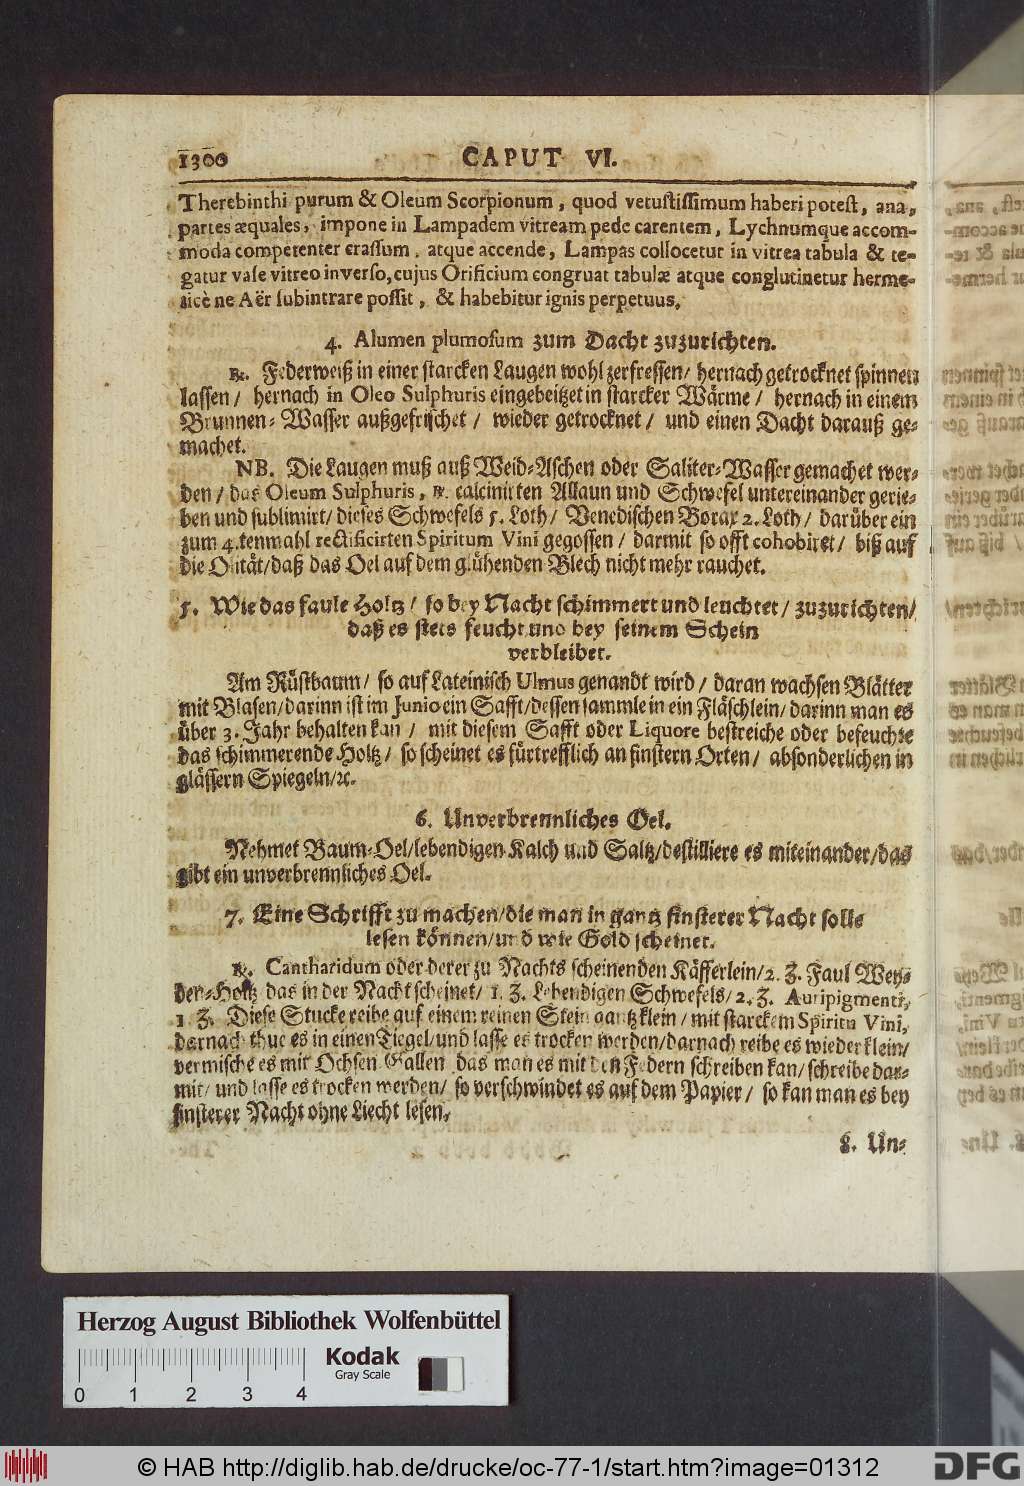 1300 CAPUT VI.
Therebinthi purum & Oleum Scorpionum, quod vetustissimum haberi potest, ana,
partes æquales, impone in Lampadem vitream pede carentem, Lychnumque accom-
moda competenter crassum, atque accende, Lampas collocetur in vitrea tabula & te-
gatur vase vitreo inverso, cujus Orificium congruat tabulæ atque conglutinetur herme-
ticè ne Aër subintrare possit, & habebitur ignis perpetuus.
4. Alumen plumosum zum Dacht zuzurichten.
℞. Federweiß in einer starcken Laugen wohl zerfressen/ hernach getrocknet spinnen
lassen/ hernach in Oleo Sulphuris eingebeitzet in starcker Wärme/ hernach in einem
Brunnen-Wasser außgefrischet/ wieder getrocknet/ und einen Dacht darauß ge-
machet.
NB. Die Laugen muß auß Weid-Aschen oder Saliter-Wasser gemachet wer-
den/ das Oleum Sulphuris, ℞. calcinirten Allaun und Schwefel untereinander gerie-
ben und sublimirt/ dieses Schwefels 5. Loth/ Venedischen Borax 2. Loth/ darüber ein
zum 4.tenmahl rectificirten Spiritum Vini gegossen/ darmit so offt cohobiret/ biß auf
die Olität/ daß das Oel auf dem glühenden Blech nicht mehr rauchet.
5. Wie das faule Holtz/ so bey Nacht schimmert und leuchtet/ zuzurichten/
daß es stets feucht und bey seinem Schein
verbleibet.
Am Rüstbaum/ so auf Lateinisch Ulmus genandt wird/ daran wachsen Blätter
mit Blasen/ darinn ist im Junio ein Safft/ dessen sammle in ein Fläschlein/ darinn man es
über 3. Jahr behalten kan/ mit diesem Safft oder Liquore bestreiche oder befeuchte
das schimmerende Holtz/ so scheinet es fürtrefflich an finstern Orten/ absonderlichen in
glässern Spiegeln/ ꝛc.
6. Unverbrennliches Oel.
Nehmet Baum-Oel/ lebendigen Kalch und Saltz/ destilliere es miteinander/ das
gibt ein unverbrennliches Oel.
7. Eine Schrifft zu machen/ die man in gantz finsterer Nacht solle
lesen können/ und wie Gold scheinet.
℞. Cantharidum oder derer zu Nachts scheinenden Käfferlein/ 2. ℥. Faul Wey-
den-Holtz das in der Nacht scheinet/ 1. ℥. Lebendigen Schwefels/ 2. ℥. Auripigmenti,
1 ℥. Diese Stucke reibe auf einem reinen Stein gantz klein/ mit starckem Spiritu Vini,
darnach thue es in einen Tiegel/ und lasse es trocken werden/ darnach reibe es wieder klein/
vermische es mit Ochsen Gallen das man es mit den Federn schreiben kan/ schreibe dar-
mit/ und lasse es trocken werden/ so verschwindet es auf dem Papier/ so kan man es bey
finsterer Nacht ohne Liecht lesen.
8. Un-
Herzog August Bibliothek Wolfenbüttel
Kodak
Gray Scale
0 1 2 3 4
© HAB http://diglib.hab.de/drucke/oc-77-1/start.htm?image=01312
DFG